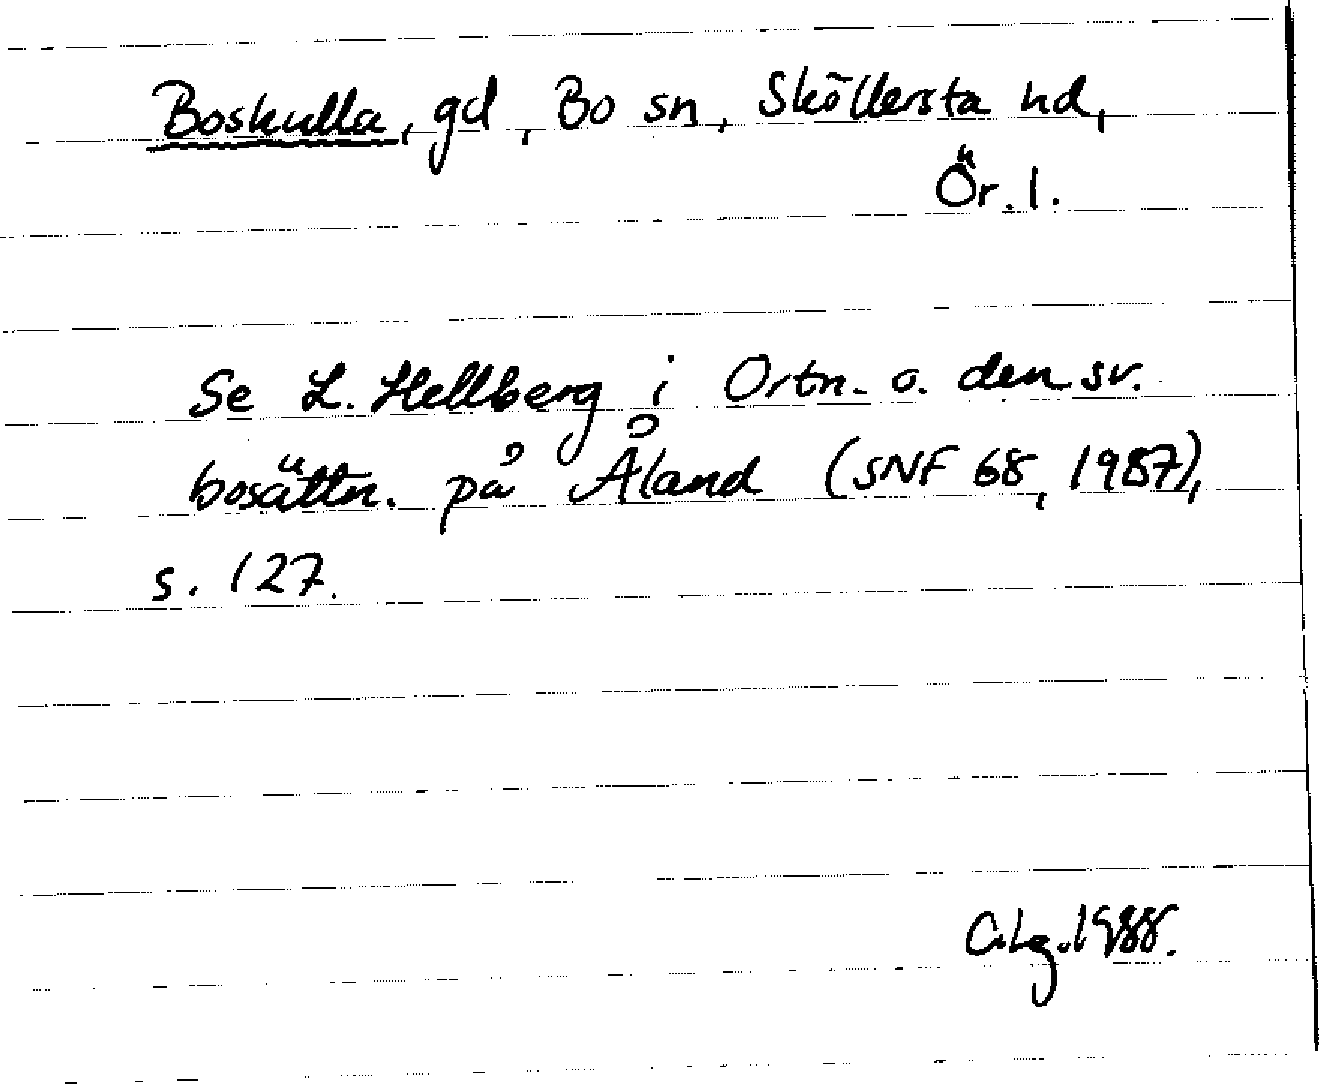 Boskulla, gd, Bo sn, Sköllersta hd,
Ör. l.
Se L. Hellberg i Ortn. o. den sv.
bosättn. på Åland (SNF 68, 1987),
s. 127.
C.Lg. 1988.